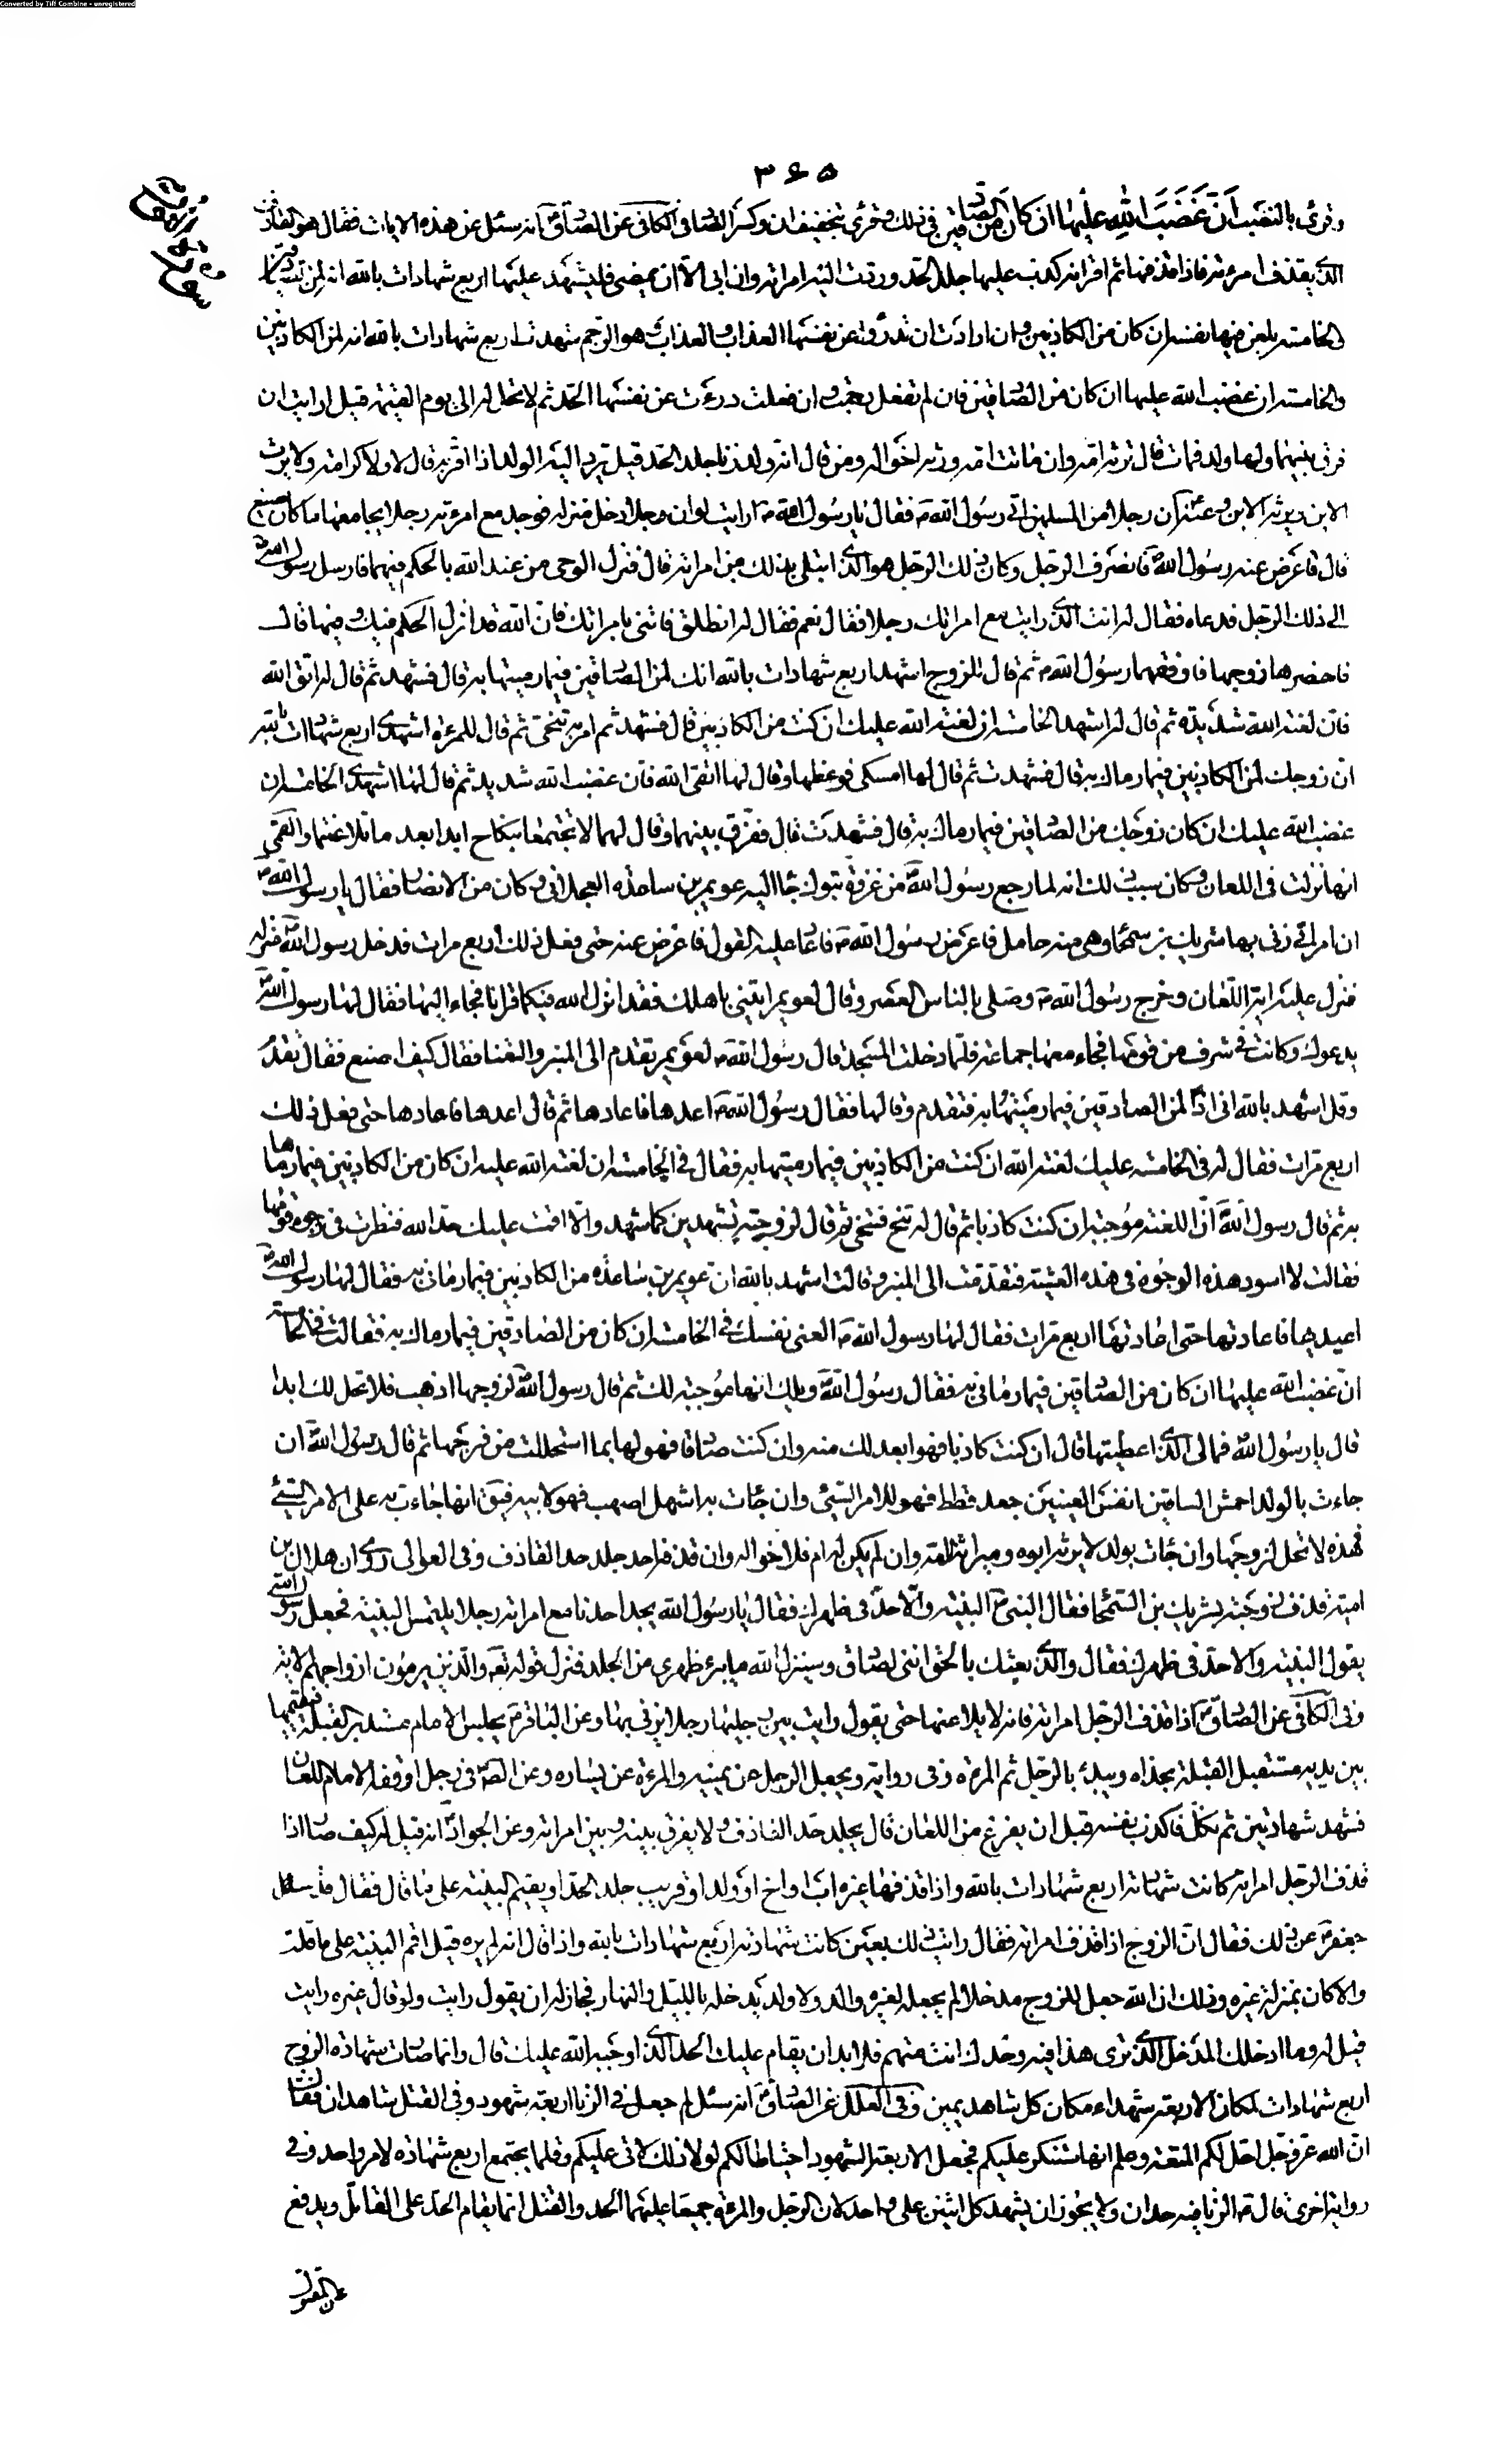 Converted by Tiff Combine - unregistered
٣٦٥
وقرئ بالنصب أَنَّ غَضَبَ اللهِ عليها ان كان من الصادقين في ذلك وقرئ بتخفيف ان وكسر الضاد في الكافي عن الصادق انه سئل عن هذه الايات فقال هو القاذف
الذي يقذف امرءته فاذا قذفها ثم اقر انه كذب عليها جلد الحد وردت اليه امراته وان ابى الا ان يمضي فليشهد عليها اربع شهادات بالله انه لمن الصادقين
والخامسة يلعن فيها نفسه ان كان من الكاذبين وان ارادت ان تدرؤا عن نفسها العذاب والعذاب هو الرجم شهدت اربع شهادات بالله انه لمن الكاذبين
والخامسة ان غضب الله عليها ان كان من الصادقين فان لم تفعل رجمت وان فعلت درءت عن نفسها الحد ثم لا تحل له الى يوم القيمة قيل ارايت ان
فرق بينهما ولها ولد فمات قال ترثه امه وان ماتت امه ورثه اخواله ومن قال انه ولد زنا جلد الحد قيل يرد اليه الولد اذا اقر به قال لا ولا كرامة ولا يرث
الابن ويرثه الابن وعنه ان رجلا من المسلمين اتى رسول الله ص فقال يا رسول الله ص ارايت لو ان رجلا دخل منزله فوجد مع امرءته رجلا يجامعها ما كان يصنع
قال فاعرض عنه رسول الله ص فانصرف الرجل وكان ذلك الرجل هو الذي ابتلى بذلك من امراته قال فنزل الوحي من عند الله بالحكم فيهما فارسل رسول الله ص
الى ذلك الرجل فدعاه فقال له انت الذي رايت مع امراتك رجلا فقال نعم فقال له انطلق فاتني بامراتك فان الله قد انزل الحكم فيك وفيها قال
فاحضرها زوجها فاوقفهما رسول الله ص ثم قال للزوج اشهد اربع شهادات بالله انك لمن الصادقين فيما رميتها به قال فشهد ثم قال له اتق الله
فان لعنة الله شديدة ثم قال له اشهد الخامسة ان لعنة الله عليك ان كنت من الكاذبين قال فشهد ثم امر به تنحى ثم قال للمرءة اشهدي اربع شهادات بالله
ان زوجك لمن الكاذبين فيما رماك به قال فشهدت ثم قال لها امسكي فوعظها وقال لها اتقي الله فان غضب الله شديد ثم قال لها اشهدي الخامسة ان
غضب الله عليك ان كان زوجك من الصادقين فيما رماك به قال فشهدت قال ففرق بينهما وقال لهما لا تجتمعا بنكاح ابدا بعد ما تلاعنتما والقمي
انها نزلت في اللعان وكان سبب ذلك انه لما رجع رسول الله ص من غزوة تبوك جاء اليه عويمر بن ساعدة العجلاني وكان من الانصار فقال يا رسول الله ص
ان امراتي زنى بها شريك بن سمحا وهي منه حامل فاعرض رسول الله ص فاعاد عليه القول فاعرض عنه حتى فعل ذلك اربع مرات فدخل رسول الله ص منزله
فنزل عليه اية اللعان وخرج رسول الله ص وصلى بالناس العصر وقال لعويمر ايتيني باهلك فقد انزل الله فيكما قرانا فجاء اليها فقال لها رسول الله ص
يدعوك وكانت في شرف من قومها فجاء معها جماعة فلما دخلت المسجد قال رسول الله ص لعويمر تقدم الى المنبر والتعنا فقال كيف اصنع فقال تقدم
وقل اشهد بالله اني اذا لمن الصادقين فيما رميتها به فتقدم وقالها فقال رسول الله ص اعدها فاعادها ثم قال اعدها فاعادها حتى فعل ذلك
اربع مرات فقال له في الخامسة عليك لعنة الله ان كنت من الكاذبين فيما رميتها به فقال في الخامسة ان لعنة الله عليه ان كان من الكاذبين فيما رماها
به ثم قال رسول الله ص ان اللعنة موجبة ان كنت كاذبا ثم قال له تنح فتنحى ثم قال لزوجته تشهدين كما شهد والا اقمت عليك حد الله فنظرت في وجوه قومها
فقالت لا اسود هذه الوجوه في هذه العشية فتقدمت الى المنبر وقالت اشهد بالله ان عويمر بن ساعدة من الكاذبين فيما رماني به فقال لها رسول الله ص
اعيديها فاعادتها حتى اعادتها اربع مرات فقال لها رسول الله ص العني نفسك في الخامسة ان كان من الصادقين فيما رماك به فقالت في الخامسة
ان غضب الله عليها ان كان من الصادقين فيما رماني به فقال رسول الله ص ويلك انها موجبة لك ثم قال رسول الله ص لزوجها اذهب فلا تحل لك ابدا
قال يا رسول الله ص فمالي الذي اعطيتها قال ان كنت كاذبا فهو ابعد لك منه وان كنت صادقا فهو لها بما استحللت من فرجها ثم قال رسول الله ص ان
جاءت بالولد احمش الساقين انفس العينين جعد قطط فهو للامر السيئ وان جاءت به اشهل اصهب فهو لابيه فيق انها جاءت به على الامر السيئ
فهذه لا تحل لزوجها وان جاءت بولد لا يرثه ابوه وميراثه لامه وان لم يكن له ام فلاخواله وان قذفه احد جلد حد القاذف وفي العوالي روى ان هلال بن
امية قذف زوجته بشريك بن السمحا فقال النبي ص البينة والا حد في ظهرك فقال يا رسول الله يجد احدنا مع امراته رجلا يلتمس البينة فجعل رسول الله ص
يقول البينة والا حد في ظهرك فقال والذي بعثك بالحق انني لصادق وسينزل الله ما يبرء ظهري من الجلد فنزل قوله تعه والذين يرمون ازواجهم الاية
وفي الكافي عن الصادق ع اذا قذف الرجل امراته فانه لا يلاعنها حتى يقول رايت بين رجليها رجلا يزني بها وعن الباقر ع يجلس الامام مستدبر القبلة فيقيمها
بين يديه مستقبل القبلة بحذاه ويبدء بالرجل ثم المرءة وفي رواية ويجعل الرجل عن يمينه والمرءة عن يساره وعن الص ع في رجل اوقفه الامام للعان
فشهد شهادتين ثم نكل فاكذب نفسه قبل ان يفرغ من اللعان قال يجلد حد القاذف ولا يفرق بينه وبين امراته وعن الجواد ع انه قيل له كيف صار اذا
قذف الرجل امراته كانت شهادته اربع شهادات بالله واذا قذفها غيره اب او اخ او ولد او قريب جلد الحد او يقيم البينة على ما قال فقال قد سئل
جعفر ع عن ذلك فقال ان الزوج اذا قذف امراته فقال رايت ذلك بعيني كانت شهادته اربع شهادات بالله واذا قال انه لم يره قيل اقم البينة على ما قلت
والا كان بمنزلة غيره وذلك ان الله جعل للزوج مدخلا لم يجعله لغيره والد ولا ولد يدخله بالليل والنهار فجاز له ان يقول رايت ولو قال غيره رايت
قيل له وما ادخلك المدخل الذي ترى هذا فيه وحدك انت متهم فلا بد ان يقام عليك الحد الذي اوجبه الله عليك قال وانما صارت شهادة الزوج
اربع شهادات لمكان الاربعة شهداء مكان كل شاهد يمين وفي العلل عن الصادق ع انه سئل لم جعل في الزنا اربعة شهود وفي القتل شاهدان فقال
ان الله عز وجل احل لكم المتعة وعلم انها ستنكر عليكم فجعل الاربعة الشهود احتياطا لكم لولا ذلك لاتى عليكم وقلما يجتمع اربع شهادة لامر واحد وفي
رواية اخرى قال ع الزنا فيه حدان ولا يجوز ان يشهد كل اثنين على واحد لان الرجل والمرءة جميعا عليهما الحد والقتل انما يقام الحد على القاتل ويدفع
عن المقتول